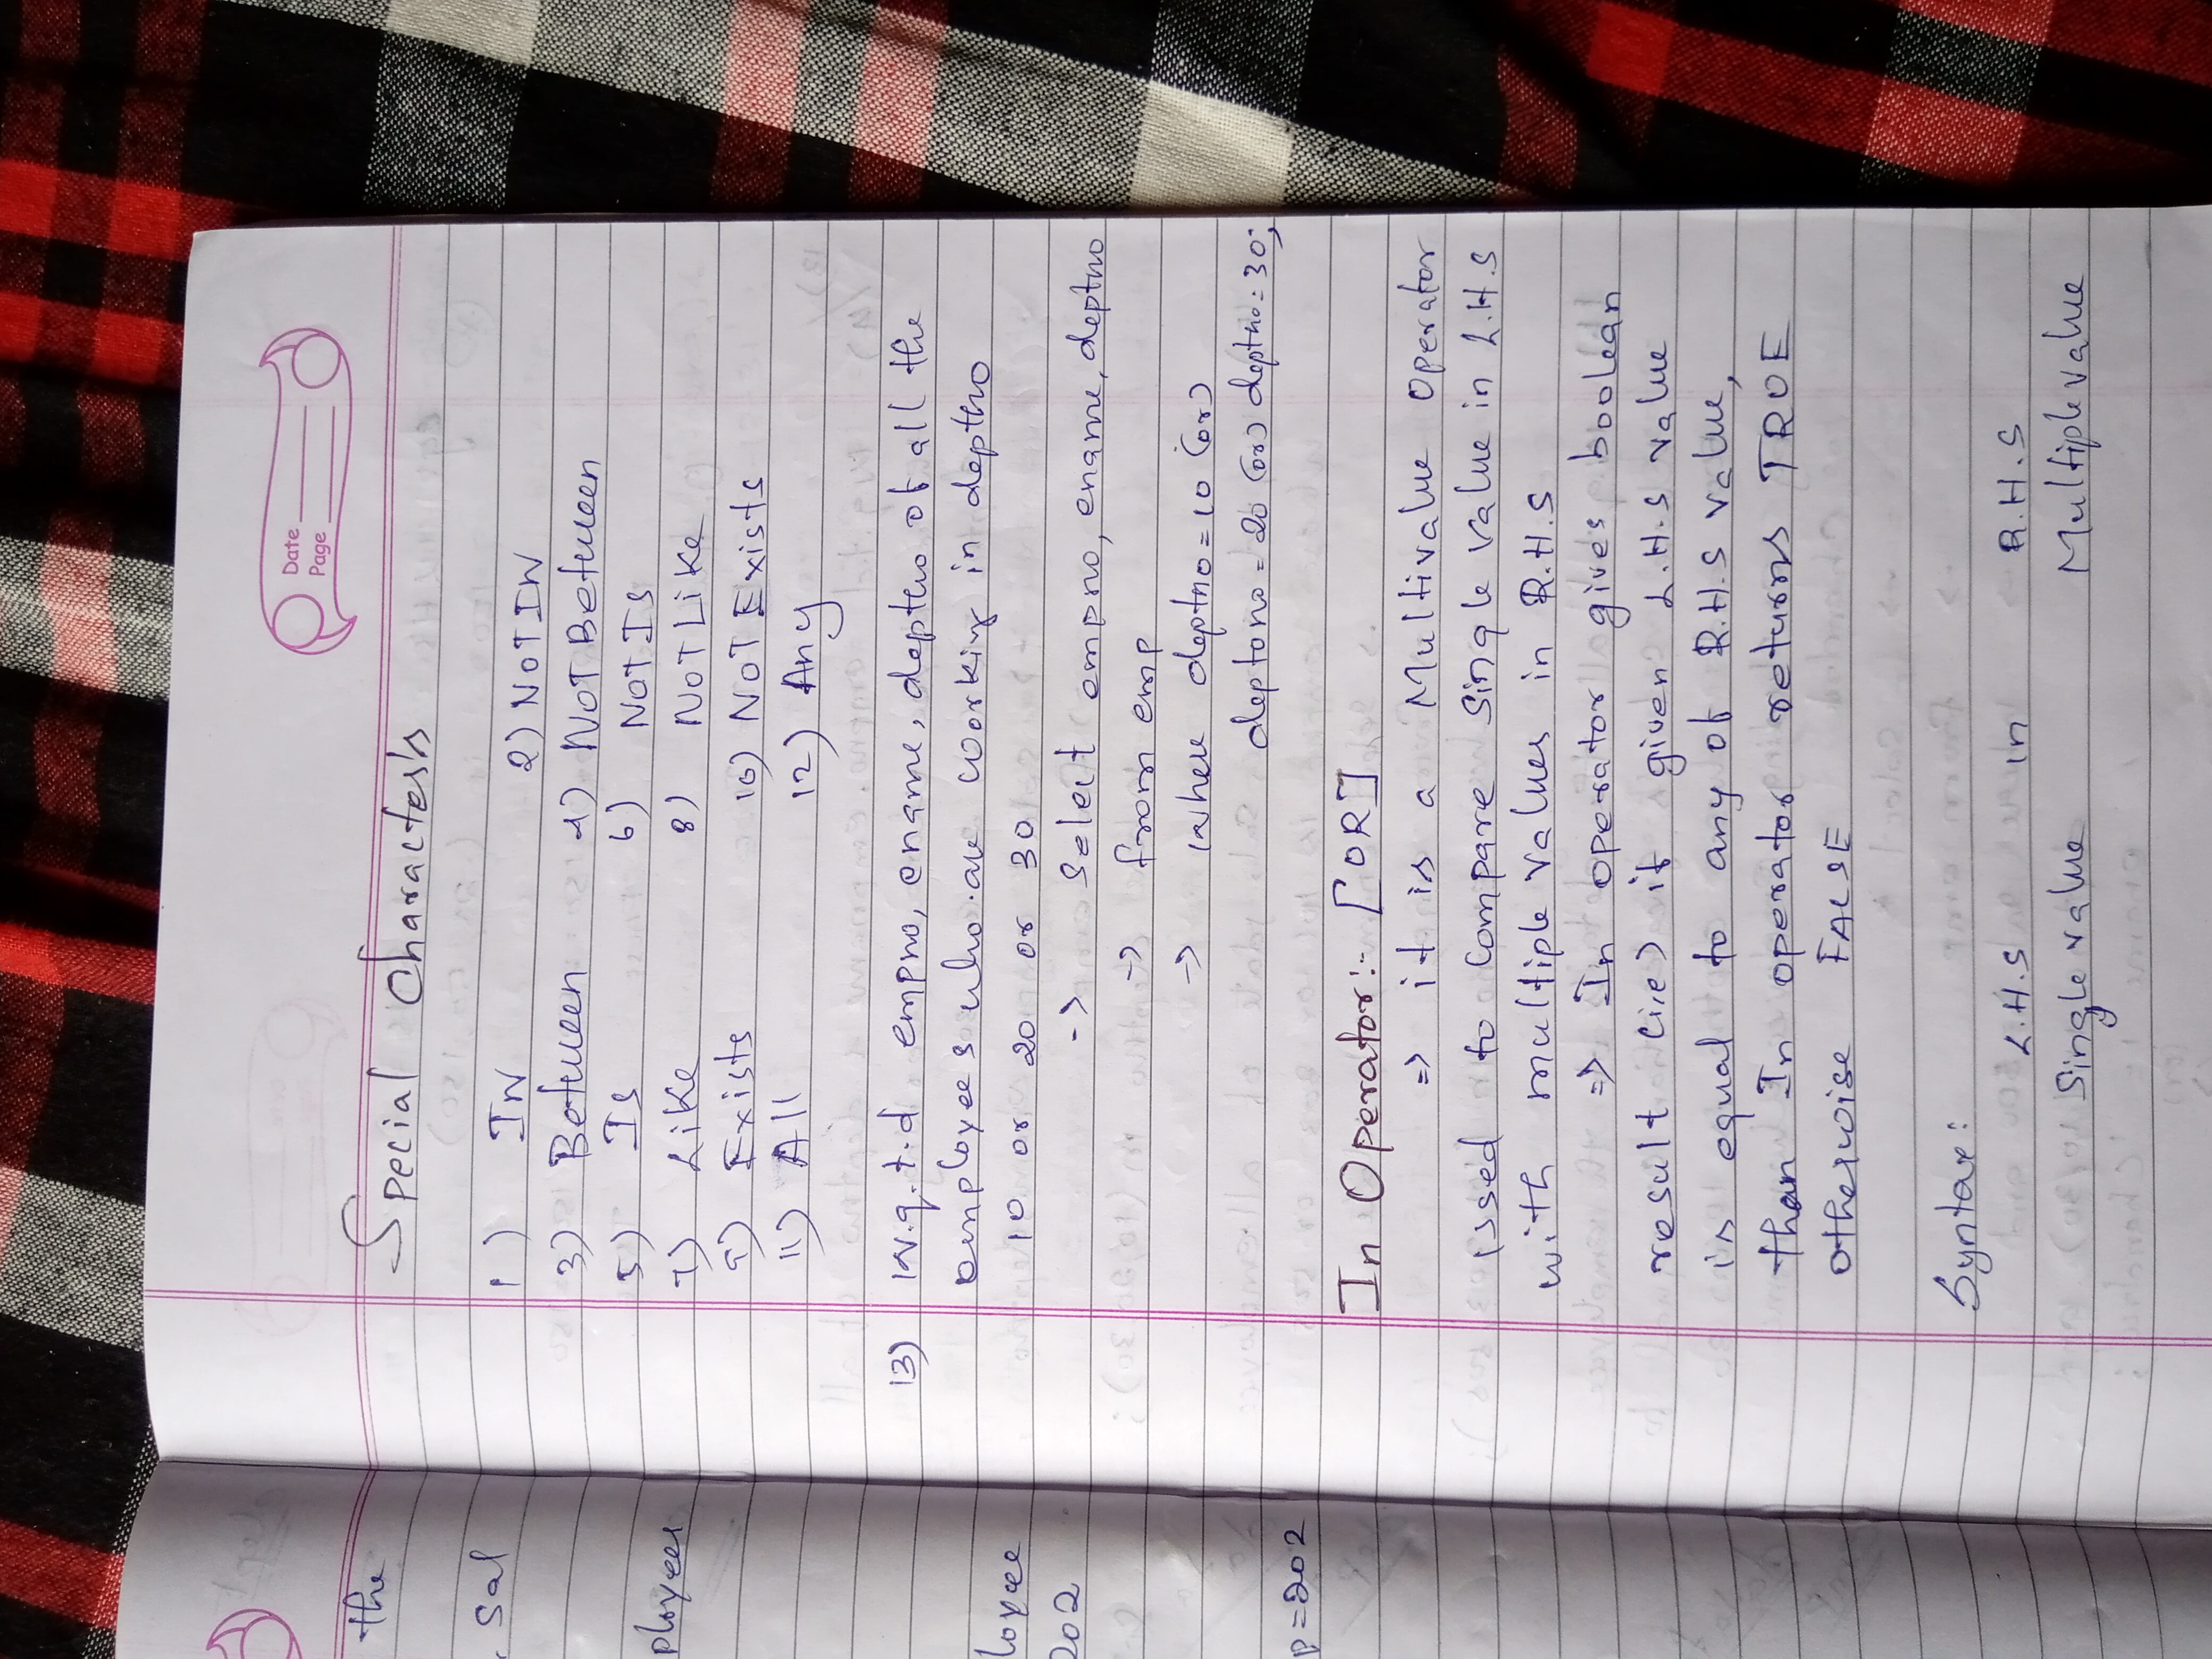 the
, sal
ployees
loyee
202
p=202
Date
Page
Special Characters
1) IN 2) NOT IN
3) Between 4) NOT Between
5) Is 6) NOT Is
7) Like 8) NOT Like
9) Exists 10) NOT Exists
11) All 12) Any
13) W.q.t.d empno, ename, deptno of all the
employees who are working in deptno
10 or 20 or 30
-> Select empno, ename, deptno
-> from emp
-> where deptno = 10 (or)
deptono = 20 (or) deptno = 30;
In Operator:- [OR]
=> it is a Multivalue Operator
used to Compare Single value in L.H.S
with multiple values in R.H.S
=> In operator gives boolean
result (i.e) if given L.H.S value
is equal to any of R.H.S value,
than In operator returns TRUE
otherwise FALSE
Syntax:
L.H.S in R.H.S
Single value Multiple value